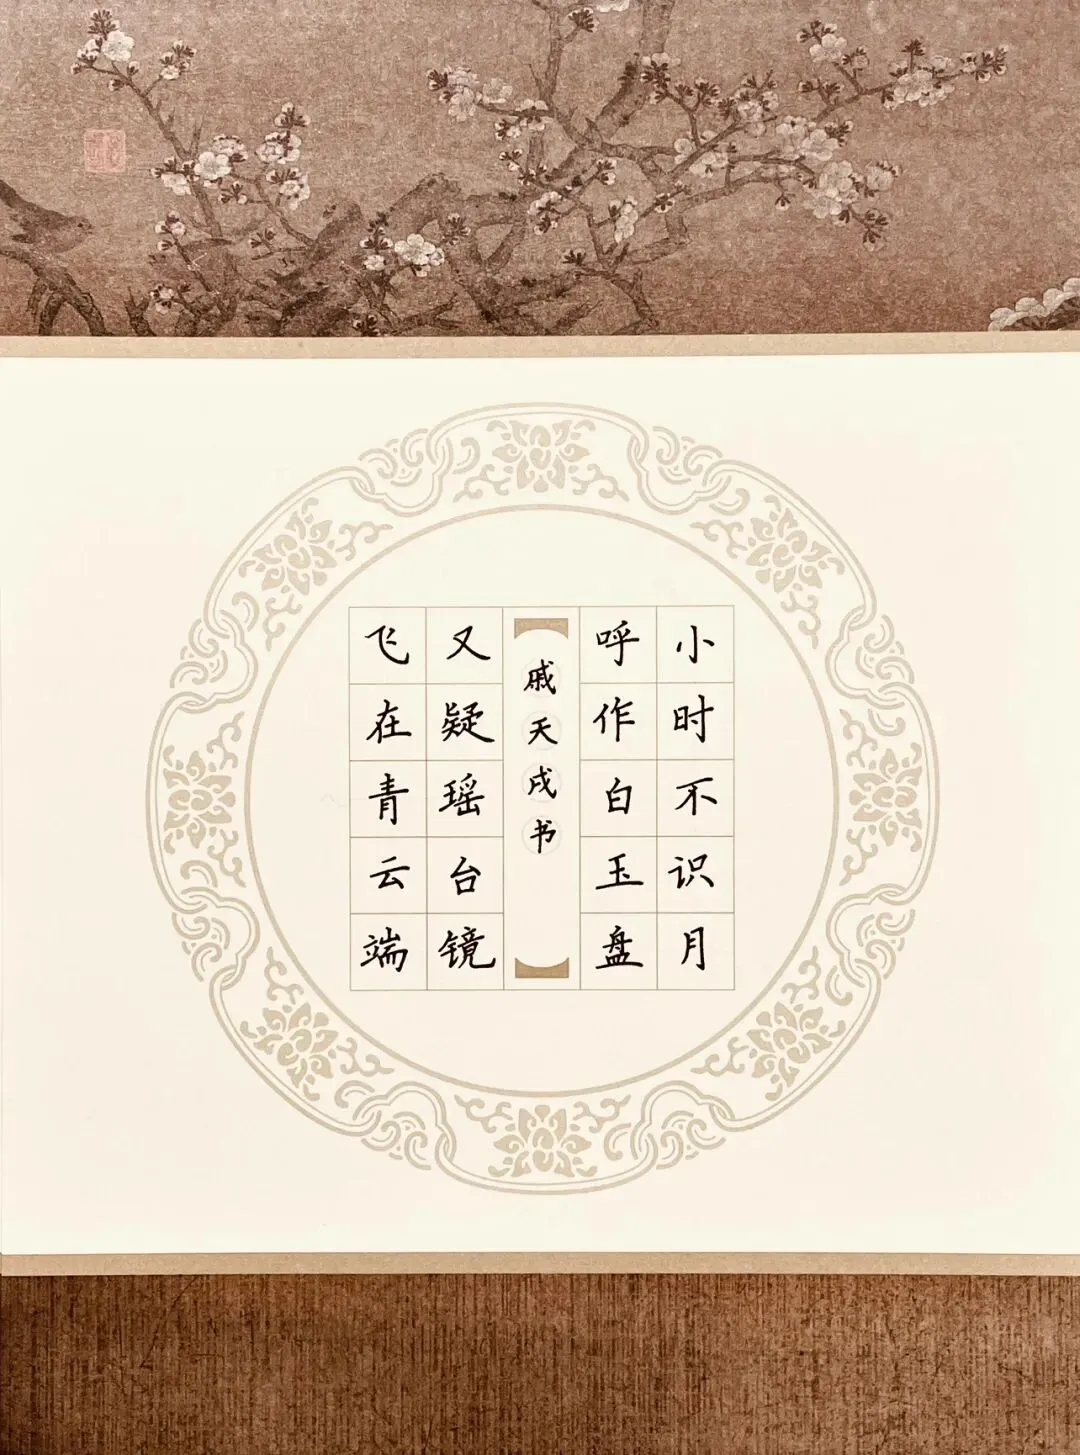 小时不识月
呼作白玉盘
戚天戌书
又疑瑶台镜
飞在青云端